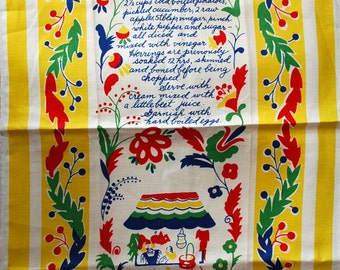 2½ cups cold boiled potatoes,
pickled cucumber, 2 raw
apples, 5 tblsp vinegar, pinch
white pepper and sugar
all diced and
mixed with vinegar
Herrings are previously
soaked 12 hrs, skinned
and boned before being
chopped
Serve with
cream mixed with
a little beet juice
Garnish with
hard boiled eggs.